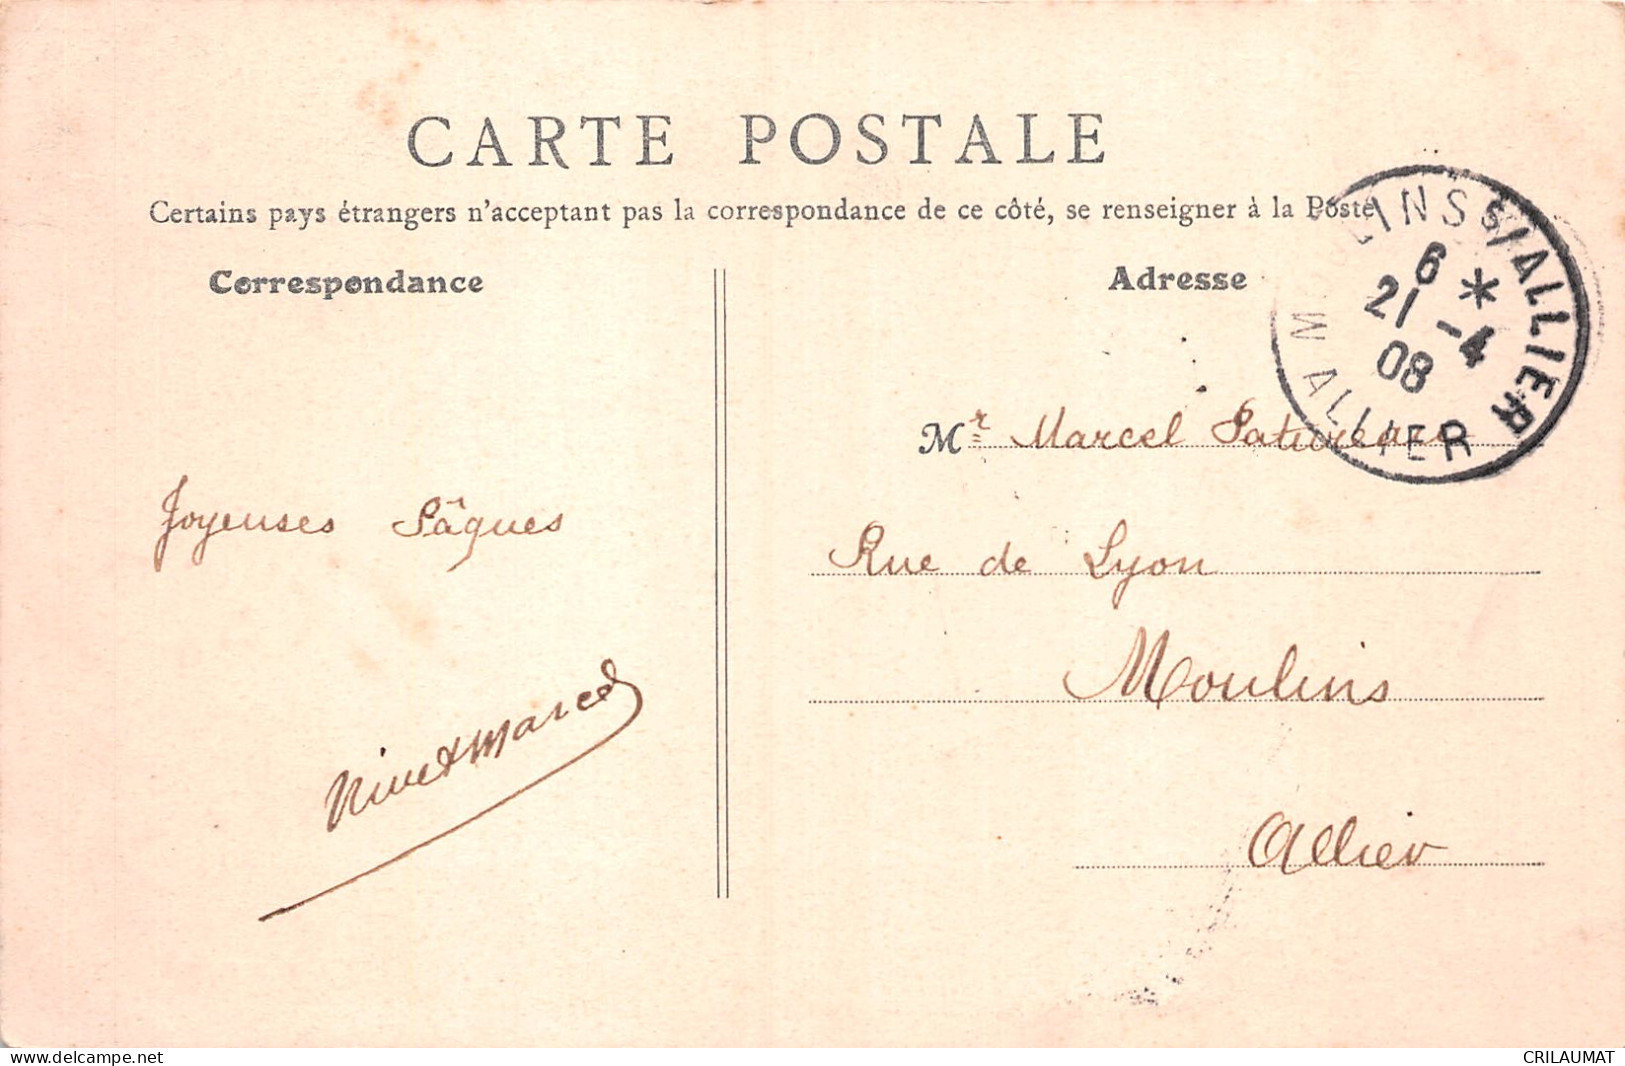 CARTE POSTALE
Certains pays étrangers n'acceptant pas la correspondance de ce côté, se renseigner à la Poste
Correspondance
Adresse
MOULINS S/ALLIER
6 *
21 -4
08
ALLIER
Mr Marcel Patureau
Rue de Lyon
Moulins
Allier
Joyeuses Pâques
Nivet Marcel
delcampe.net
CRILAUMAT